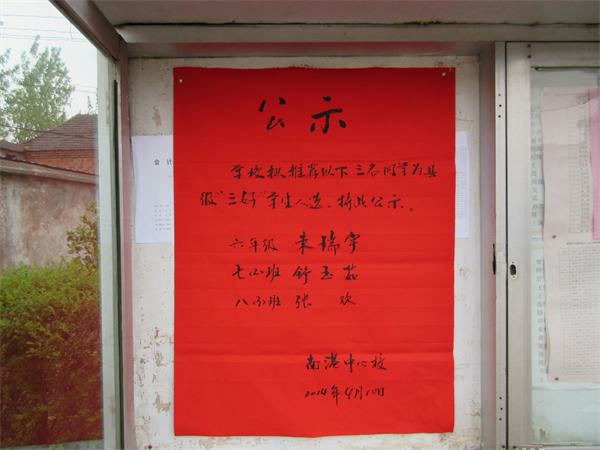 公示
学校拟推荐以下三名同学为县
级“三好”学生人选,特此公示。
六年级 朱瑞宇
七(2)班 舒玉茹
八(1)班 张 欢
南港中心校
2014年4月10日
会计